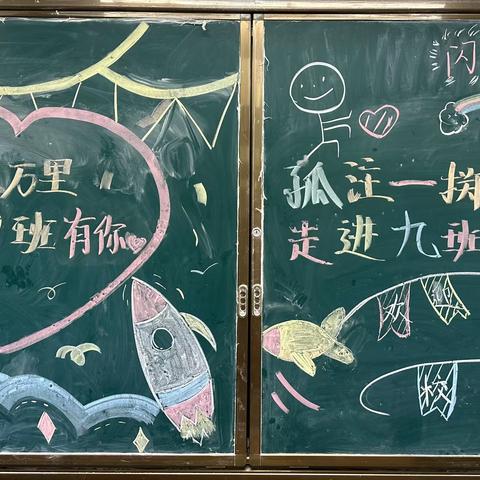 万里
班有你
闪
孤注一掷
走进九班
欢
校